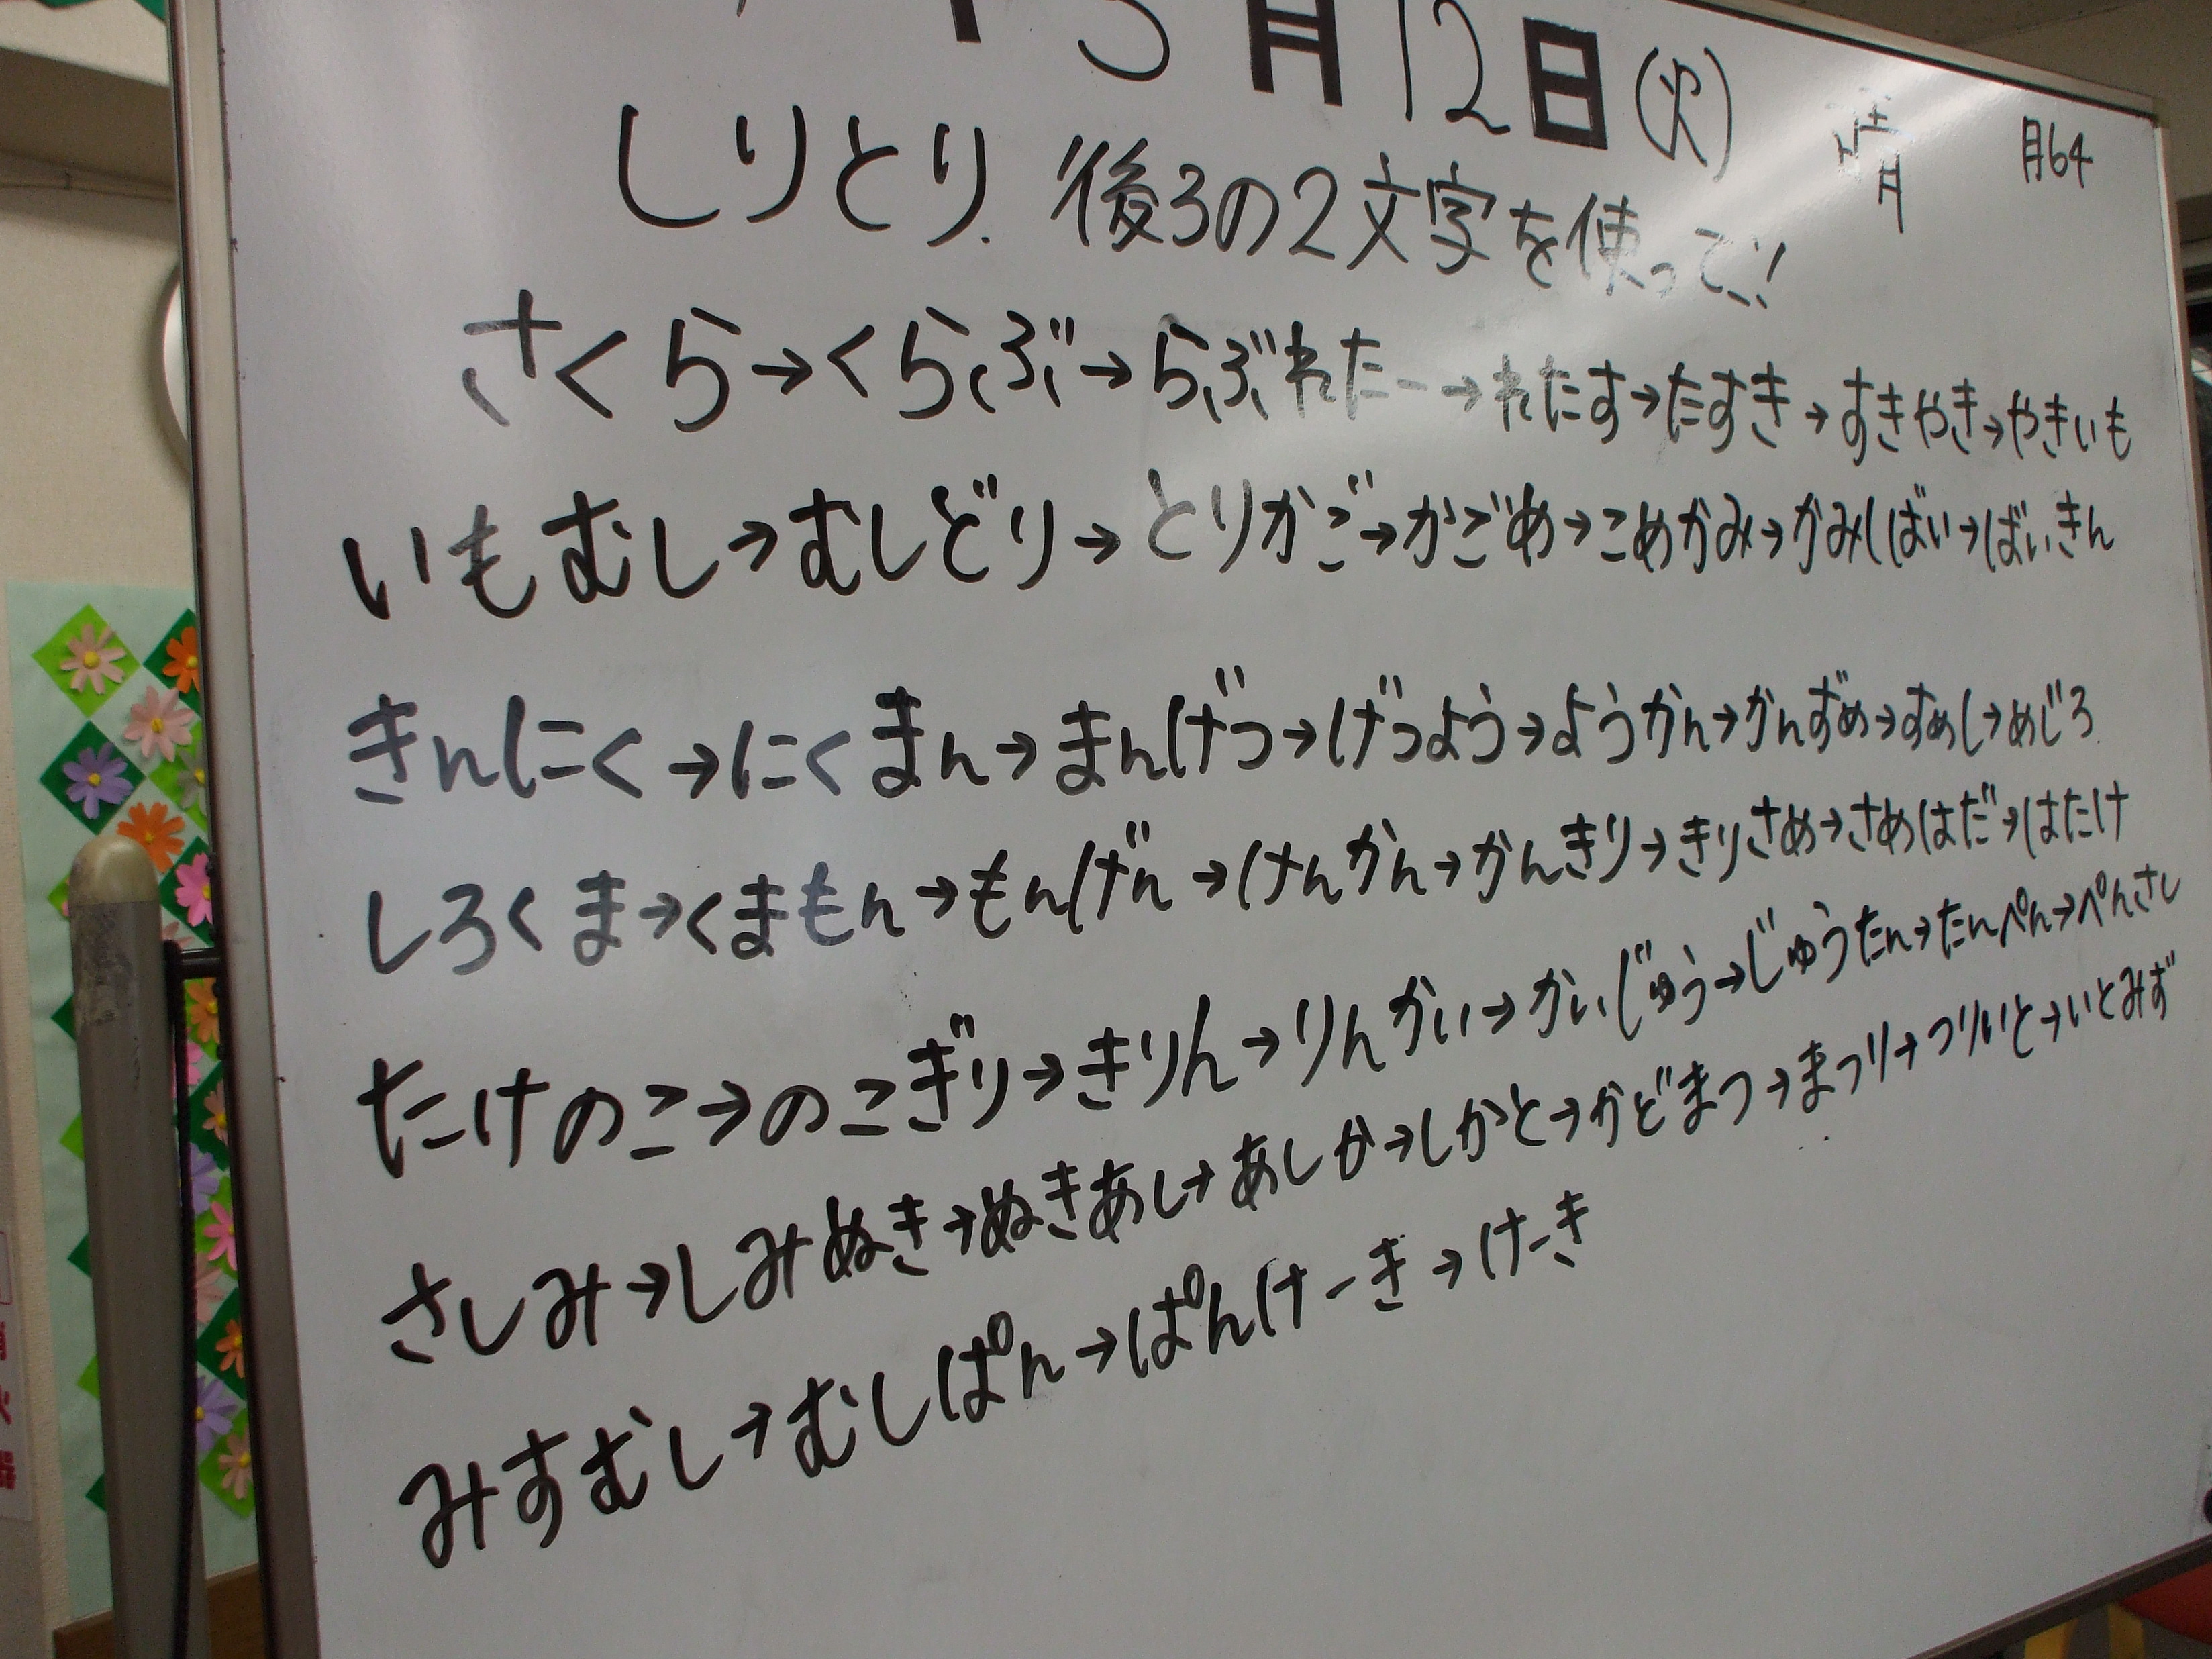 月12日(火)
月64
しりとり. 後ろの2文字を使って!!
さくら→くらぶ→らぶれたー→れたす→たすき→すきやき→やきいも
いもむし→むしどり→とりかご→かごめ→こめかみ→かみしばい→ばいきん
きんにく→にくまん→まんげつ→げつよう→ようかん→かんずめ→すめし→めじろ
しろくま→くまもん→もんげん→けんかん→かんきり→きりさめ→さめはだ→はたけ
たけのこ→のこぎり→きりん→りんかい→かいじゅう→じゅうたん→たんぺん→ぺんさし
さしみ→しみぬき→ぬきあし→あしか→しかと→かどまつ→まつり→つりいと→いとみず
みすむし→むしぱん→ぱんけーき→けーき